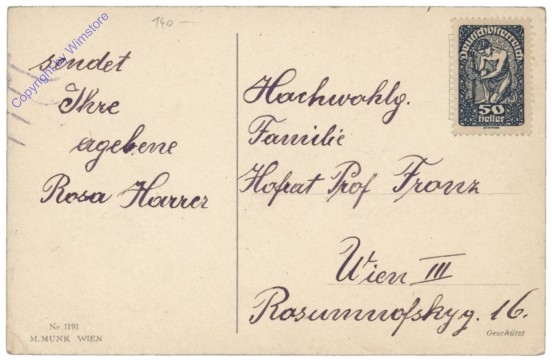 140-
Copyright by Wimstore
sendet
Ihre
ergebene
Rosa Harrer
Nr. 1191
M. MUNK WIEN
Deutschösterreich
50
Heller
Hochwohlg.
Familie
Hofrat Prof Franz
Wien III
Rasumnofskyg. 16.
Geschützt